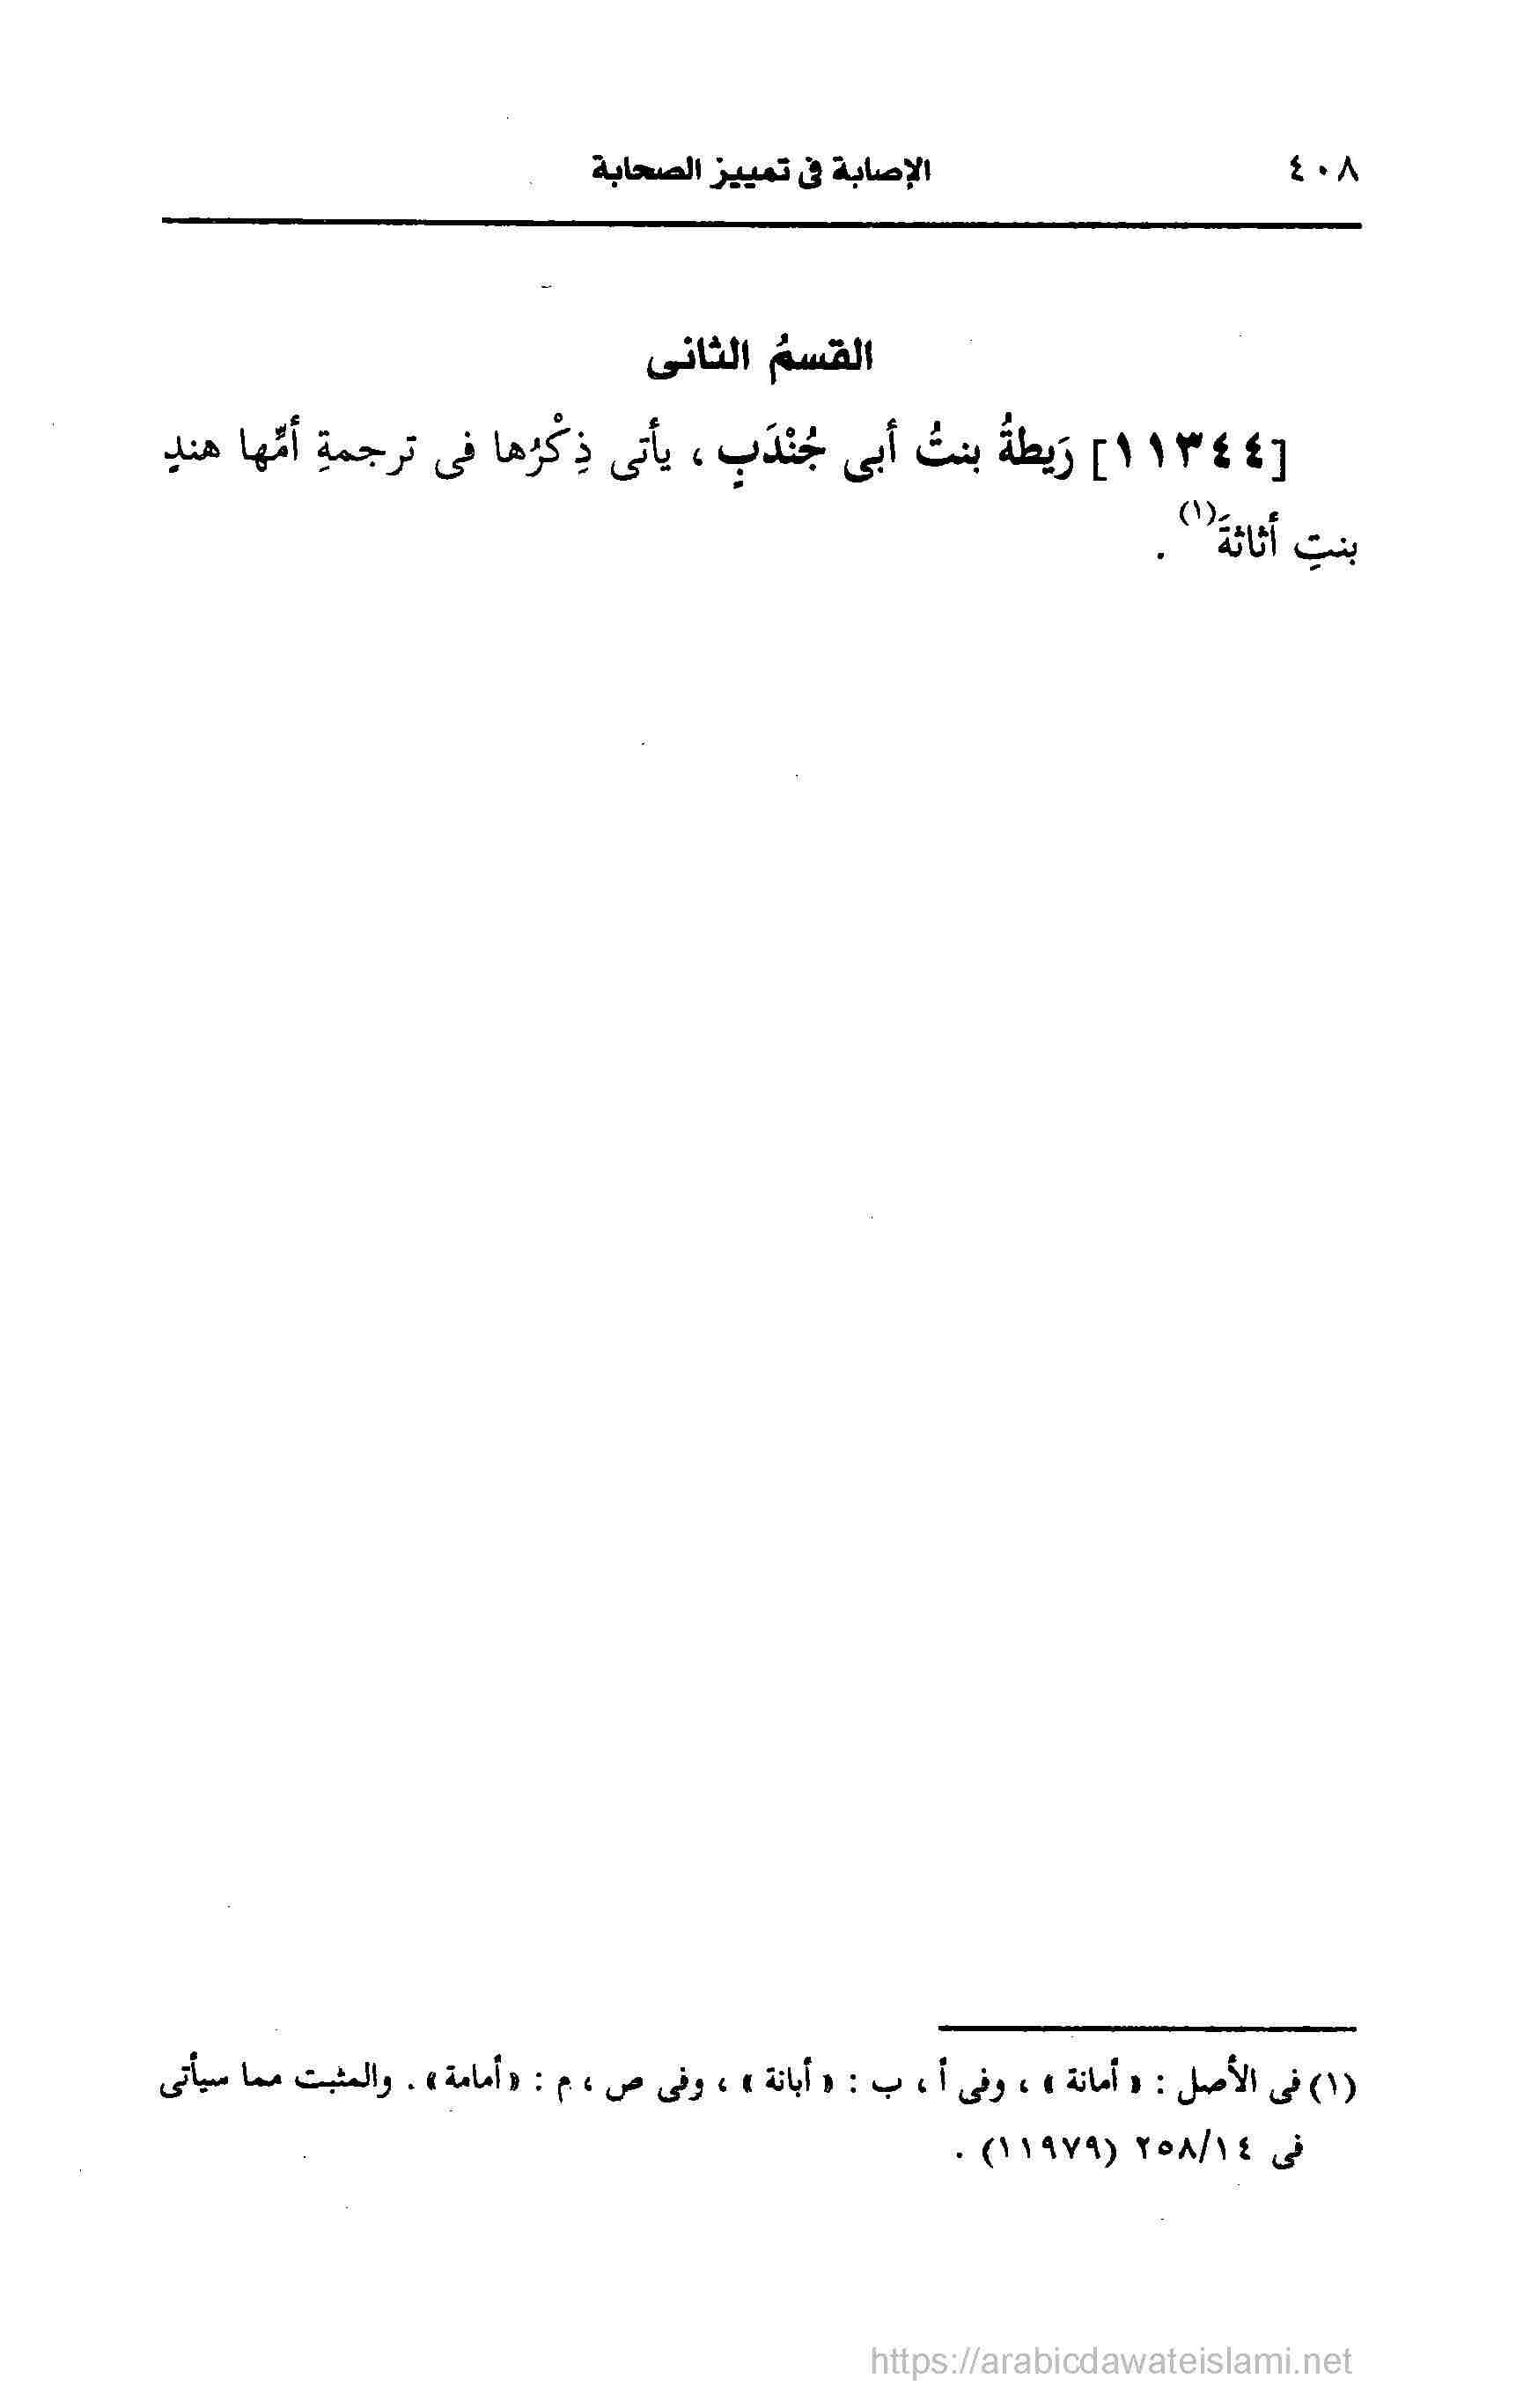 ٤٠٨ الإصابة فى تمييز الصحابة
القسمُ الثانى
[١١٣٤٤] رَيطةُ بنتُ أبى جُنْدَبٍ ، يأتى ذِكْرُها فى ترجمةِ أمِّها هندٍ
بنتِ أثاثةَ(١) .
(١) فى الأصل : « أمانة » ، وفى أ ، ب : « أبانة » ، وفى ص ، م : «أمامة» . والمثبت مما سيأتى
فى ٢٥٨/١٤ (١١٩٧٩) .
https://arabicdawateislami.net